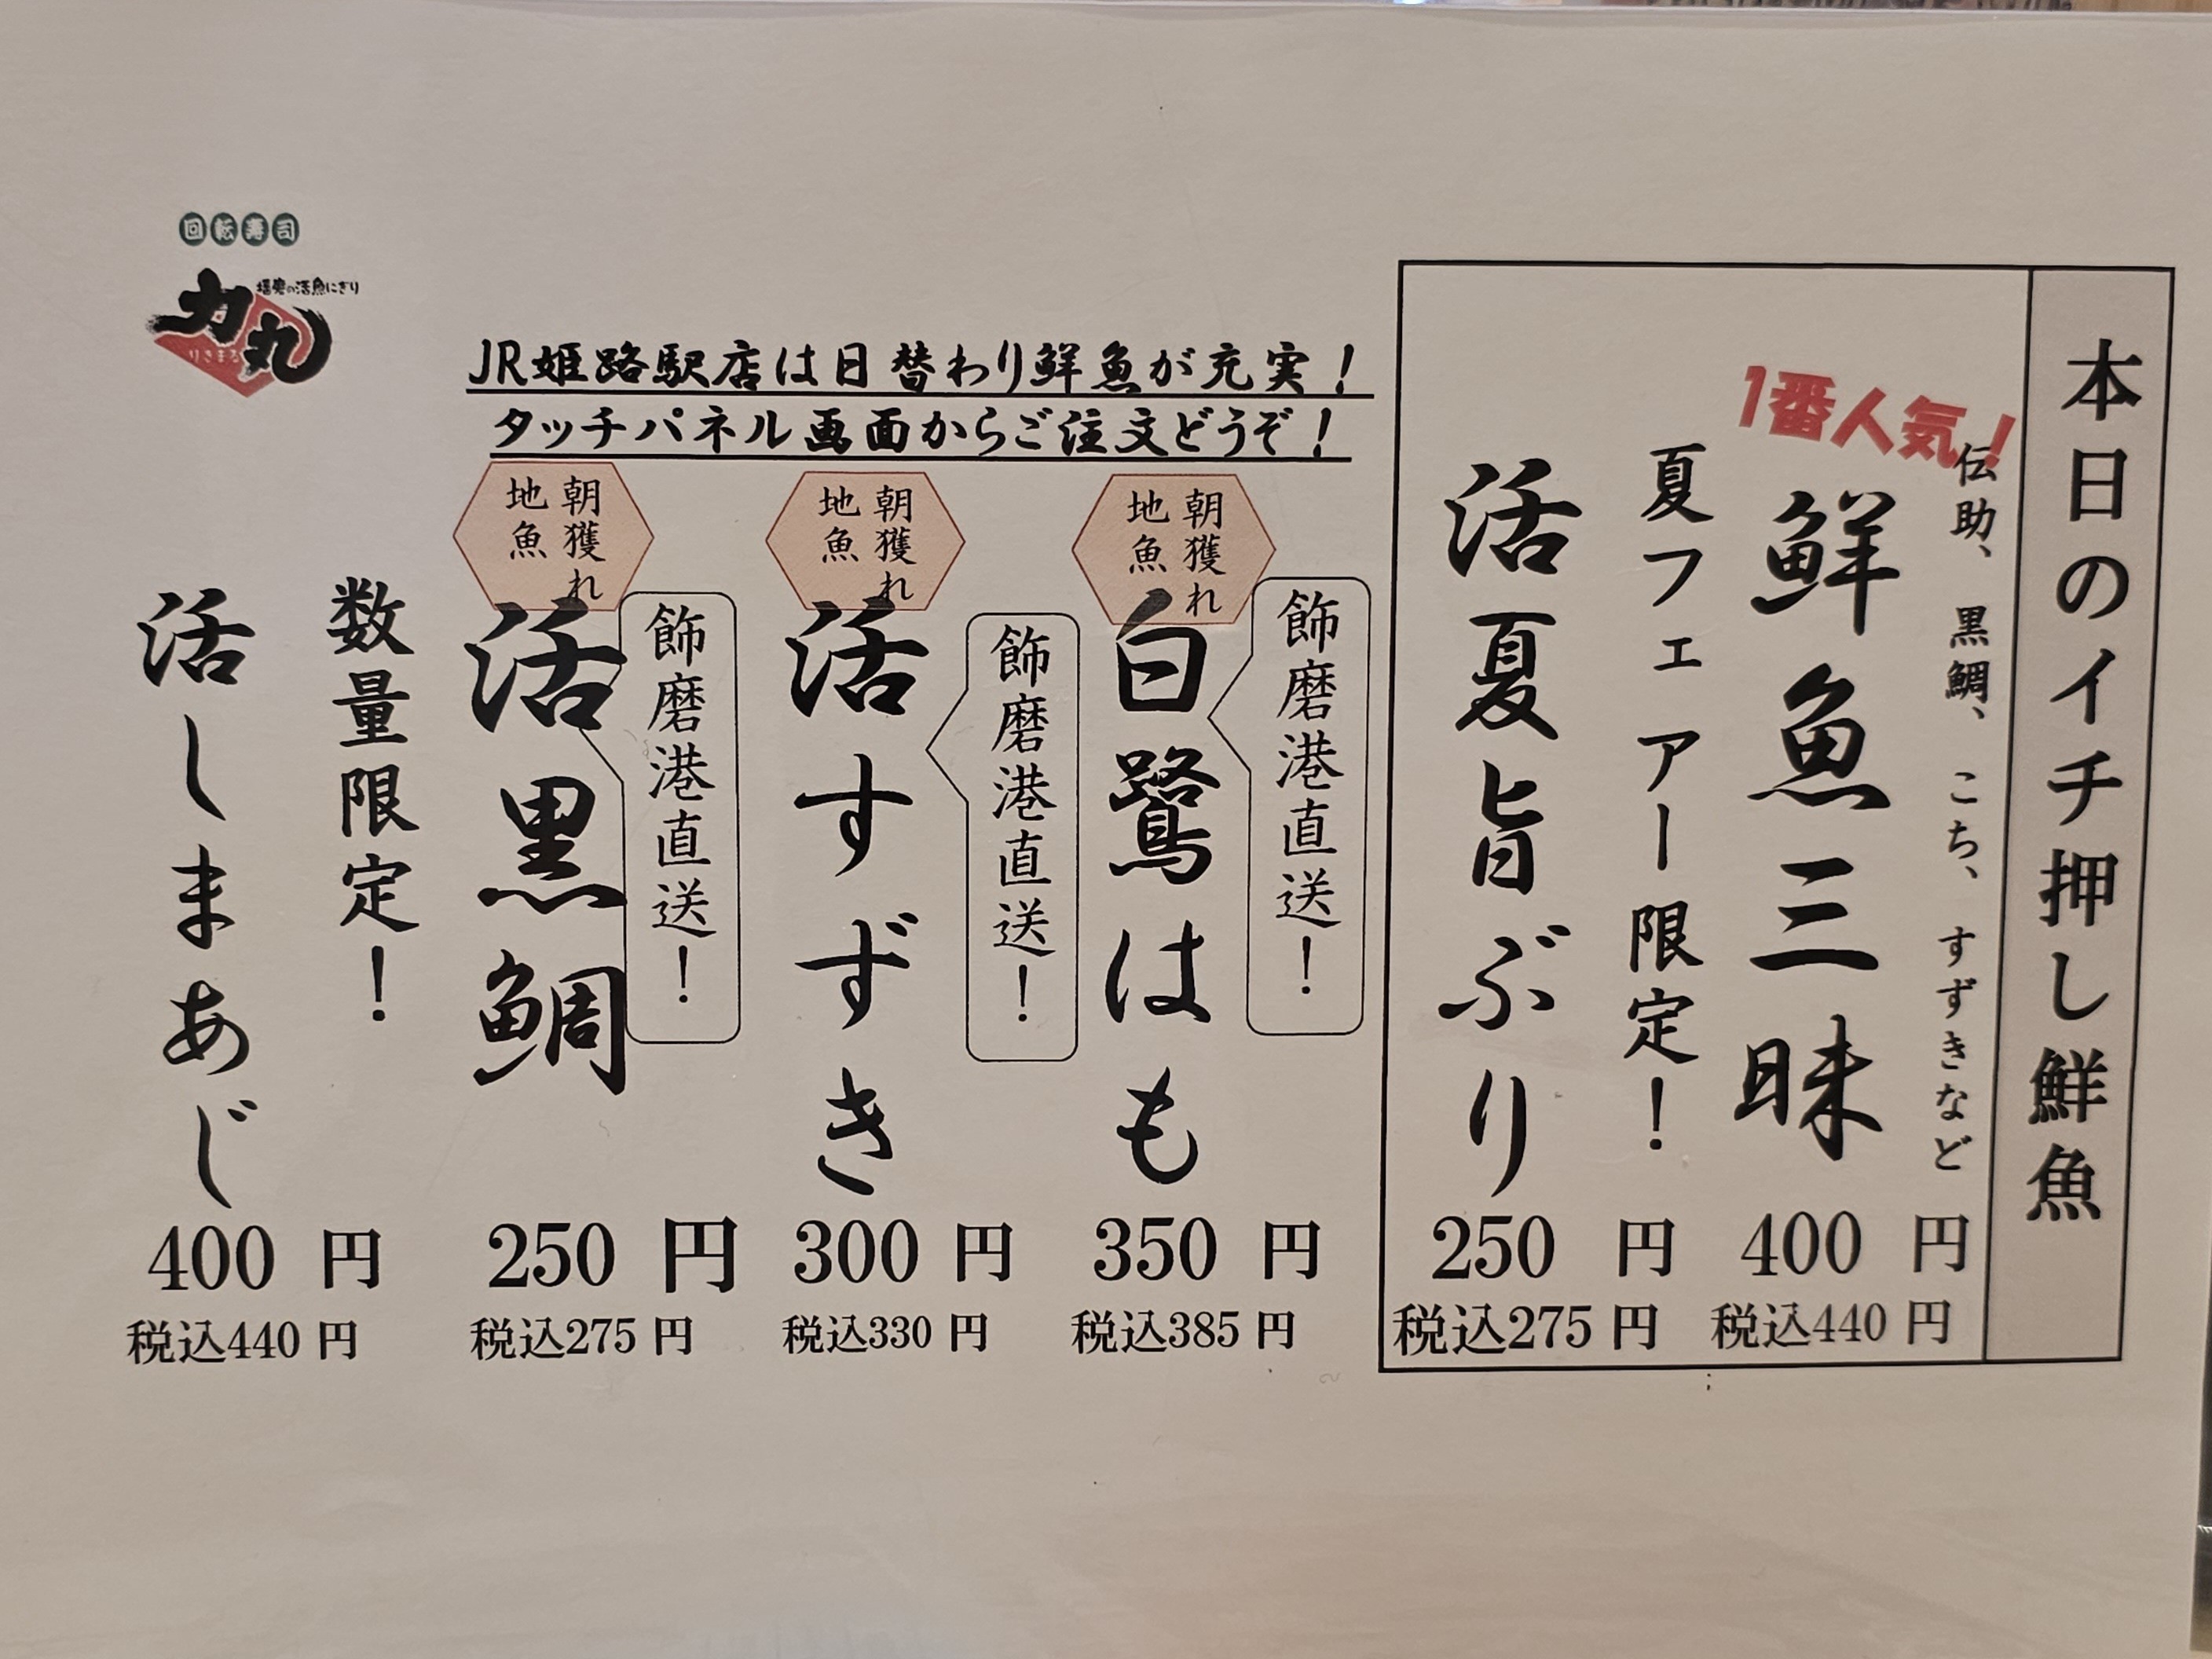 本日のイチ押し鮮魚
1番人気!
伝助、黒鯛、こち、すずきなど
鮮魚三昧
400円
税込440円
夏フェアー限定!
活夏旨ぶり
250円
税込275円
JR姫路駅店は日替わり鮮魚が充実!
タッチパネル画面からご注文どうぞ!
飾磨港直送!
朝獲れ
地魚
白鷺はも
350円
税込385円
飾磨港直送!
朝獲れ
地魚
活すずき
300円
税込330円
飾磨港直送!
朝獲れ
地魚
活黒鯛
250円
税込275円
数量限定!
活しまあじ
400円
税込440円
回転寿司
播磨の活魚にぎり
力丸
りきまる